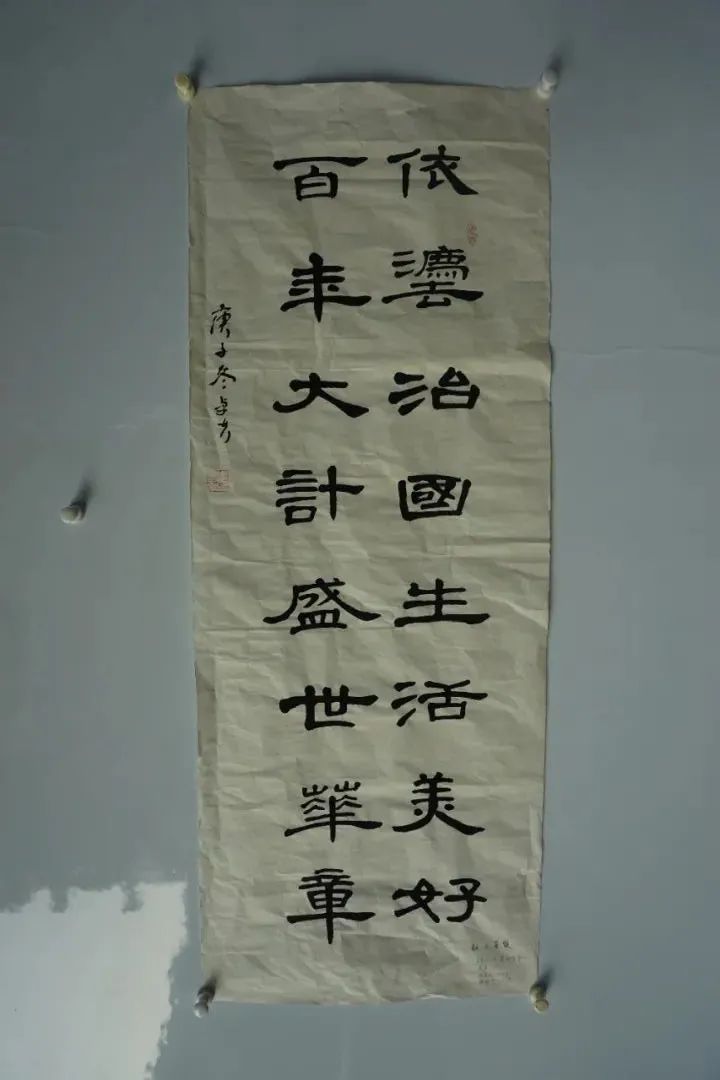 依灋治國生活美好
百年大計盛世華章
庚子冬